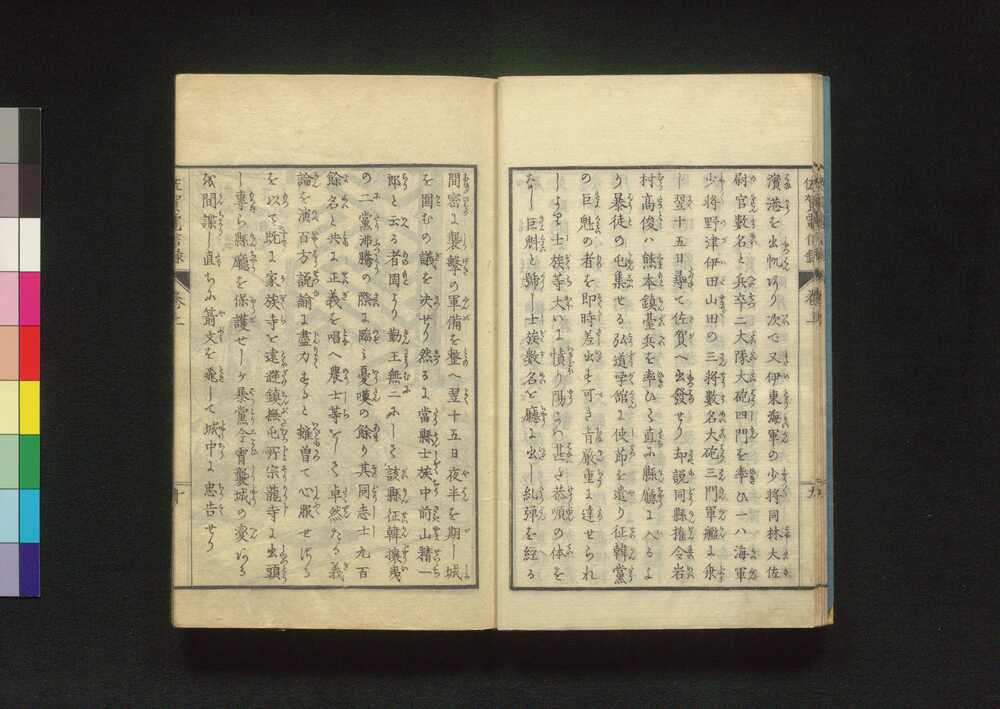 濱港を出帆あり次で又伊東海軍の少将同林大佐
尉官數名と兵卒二大隊大砲四門を率ひ一ハ海軍
少将野津伊田山田の三将數名大砲三門軍艦よ乗
ト翌十五日尋て佐賀へ出發せり却説同縣権令岩
村高俊ハ熊本鎮臺兵を率ひて直ふ縣廳よ入るよ
り暴徒の屯集せる弘道学館よ使節を遣り征韓黨
の巨魁の者を即時差出も可き肯厳重よ達せられ
しより士族等大いよ憤り陽らハ甚だ恭順の体を
なし巨魁と歸し士族数名を廳よ出し糺弾を経る
間密よ襲撃の軍備を整へ翌十五日夜半を期し城
を囲むの議を决せり然るよ當縣士族中前山精一
郎と云る者固より勤王無二ふして該縣征韓攘夷
の二黨沸騰の際よ臨ミ憂嘆の餘り其同志士九百
餘名と共よ正義を唱へ農士等をして卓然たる義
論を演百方説諭よ盡力すると雖曽て心服せざる
を以て既よ家族寺と違避鎮撫屯所宗龍寺よ出頭
し專ら縣廳を保護せしヶ暴黨今宵襲城の憂ある
を間諜し直ちふ箭文を飛して城中よ忠告せり
佐賀電信録
巻上
九
巻上
十